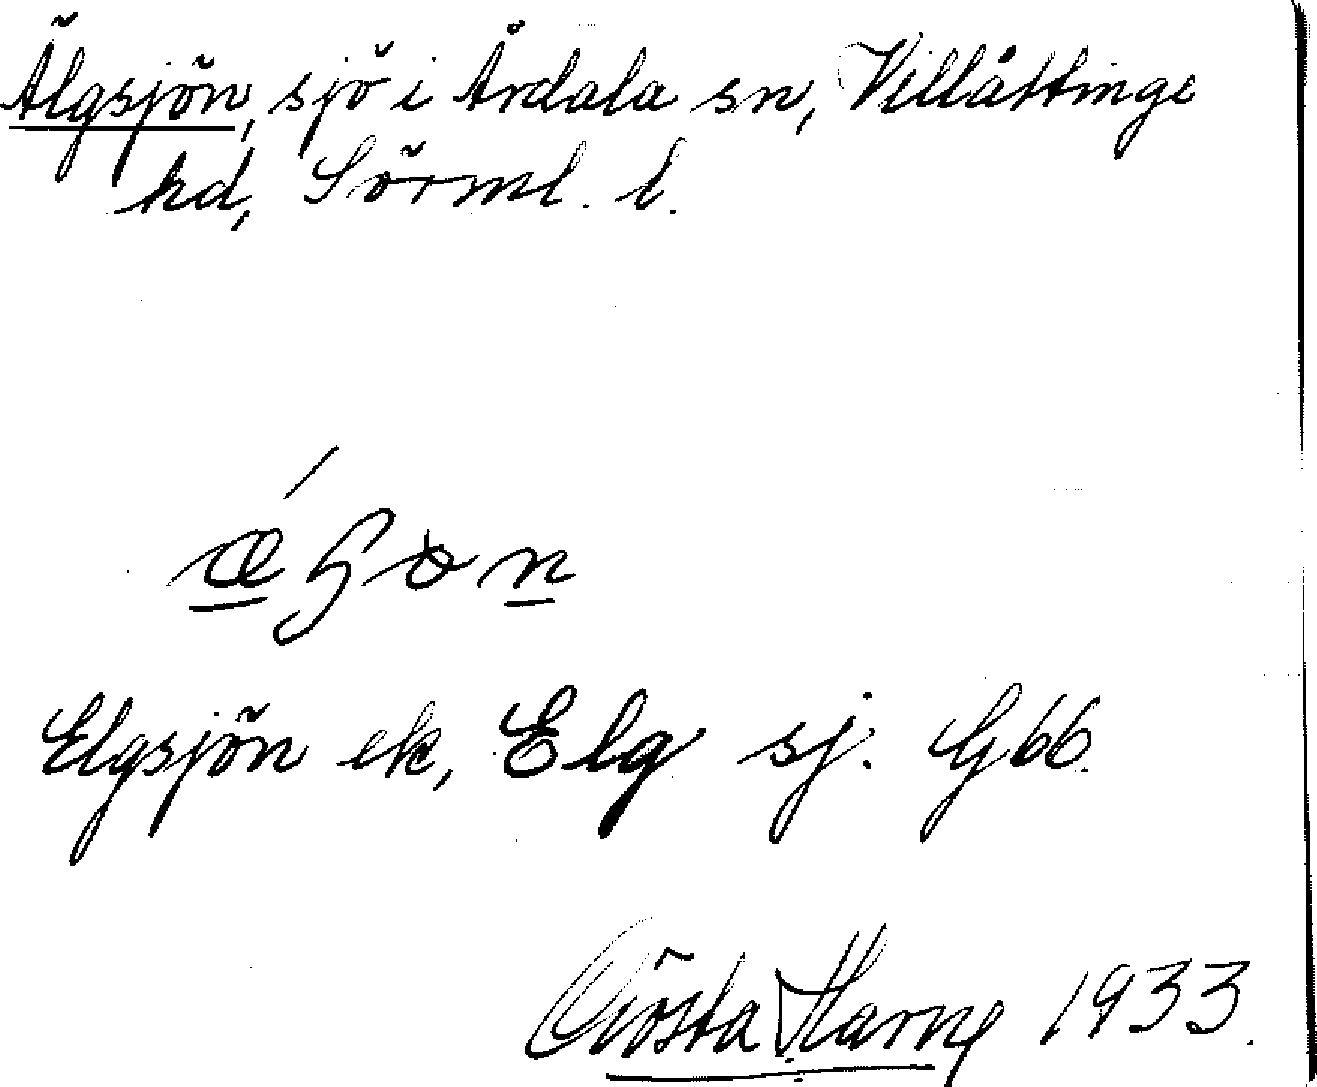 Älgsjön, sjö i Årdala sn, Villåttinge
hd, Sörml. l.
Elgsjön ek, Elg sj. G66.
Gösta 1933.